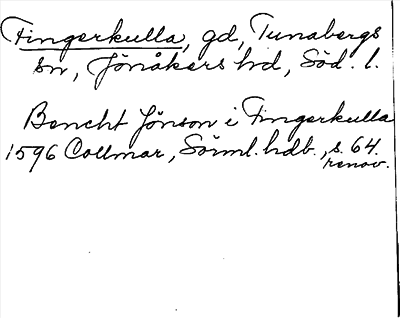 Fingerkulla, gd, Tunabergs
sn, Jönåkers hd, Söd. l.
Bencht Jönson i Fingerkulla
1596 Collmar, Sörml. hdb., s. 64.
renov.